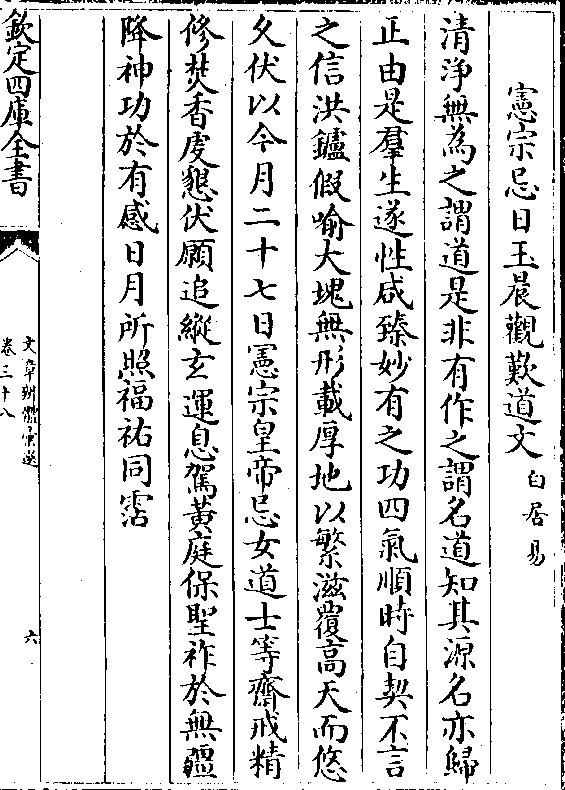 憲宗忌日玉晨觀歎道文 白居易
清淨無為之謂道是非有作之謂名道知其源名亦歸
正由是羣生遂性咸臻妙有之功四氣順時自契不言
之信洪鑪假喻大塊無形載厚地以繁滋覆高天而悠
久伏以今月二十七日憲宗皇帝忌女道士等齋戒精
修焚香虔懇伏願追縱玄運息駕黃庭保聖祚於無疆
降神功於有感日月所照福祐同霑
欽定四庫全書
文章辨體彚選
卷三十八
六